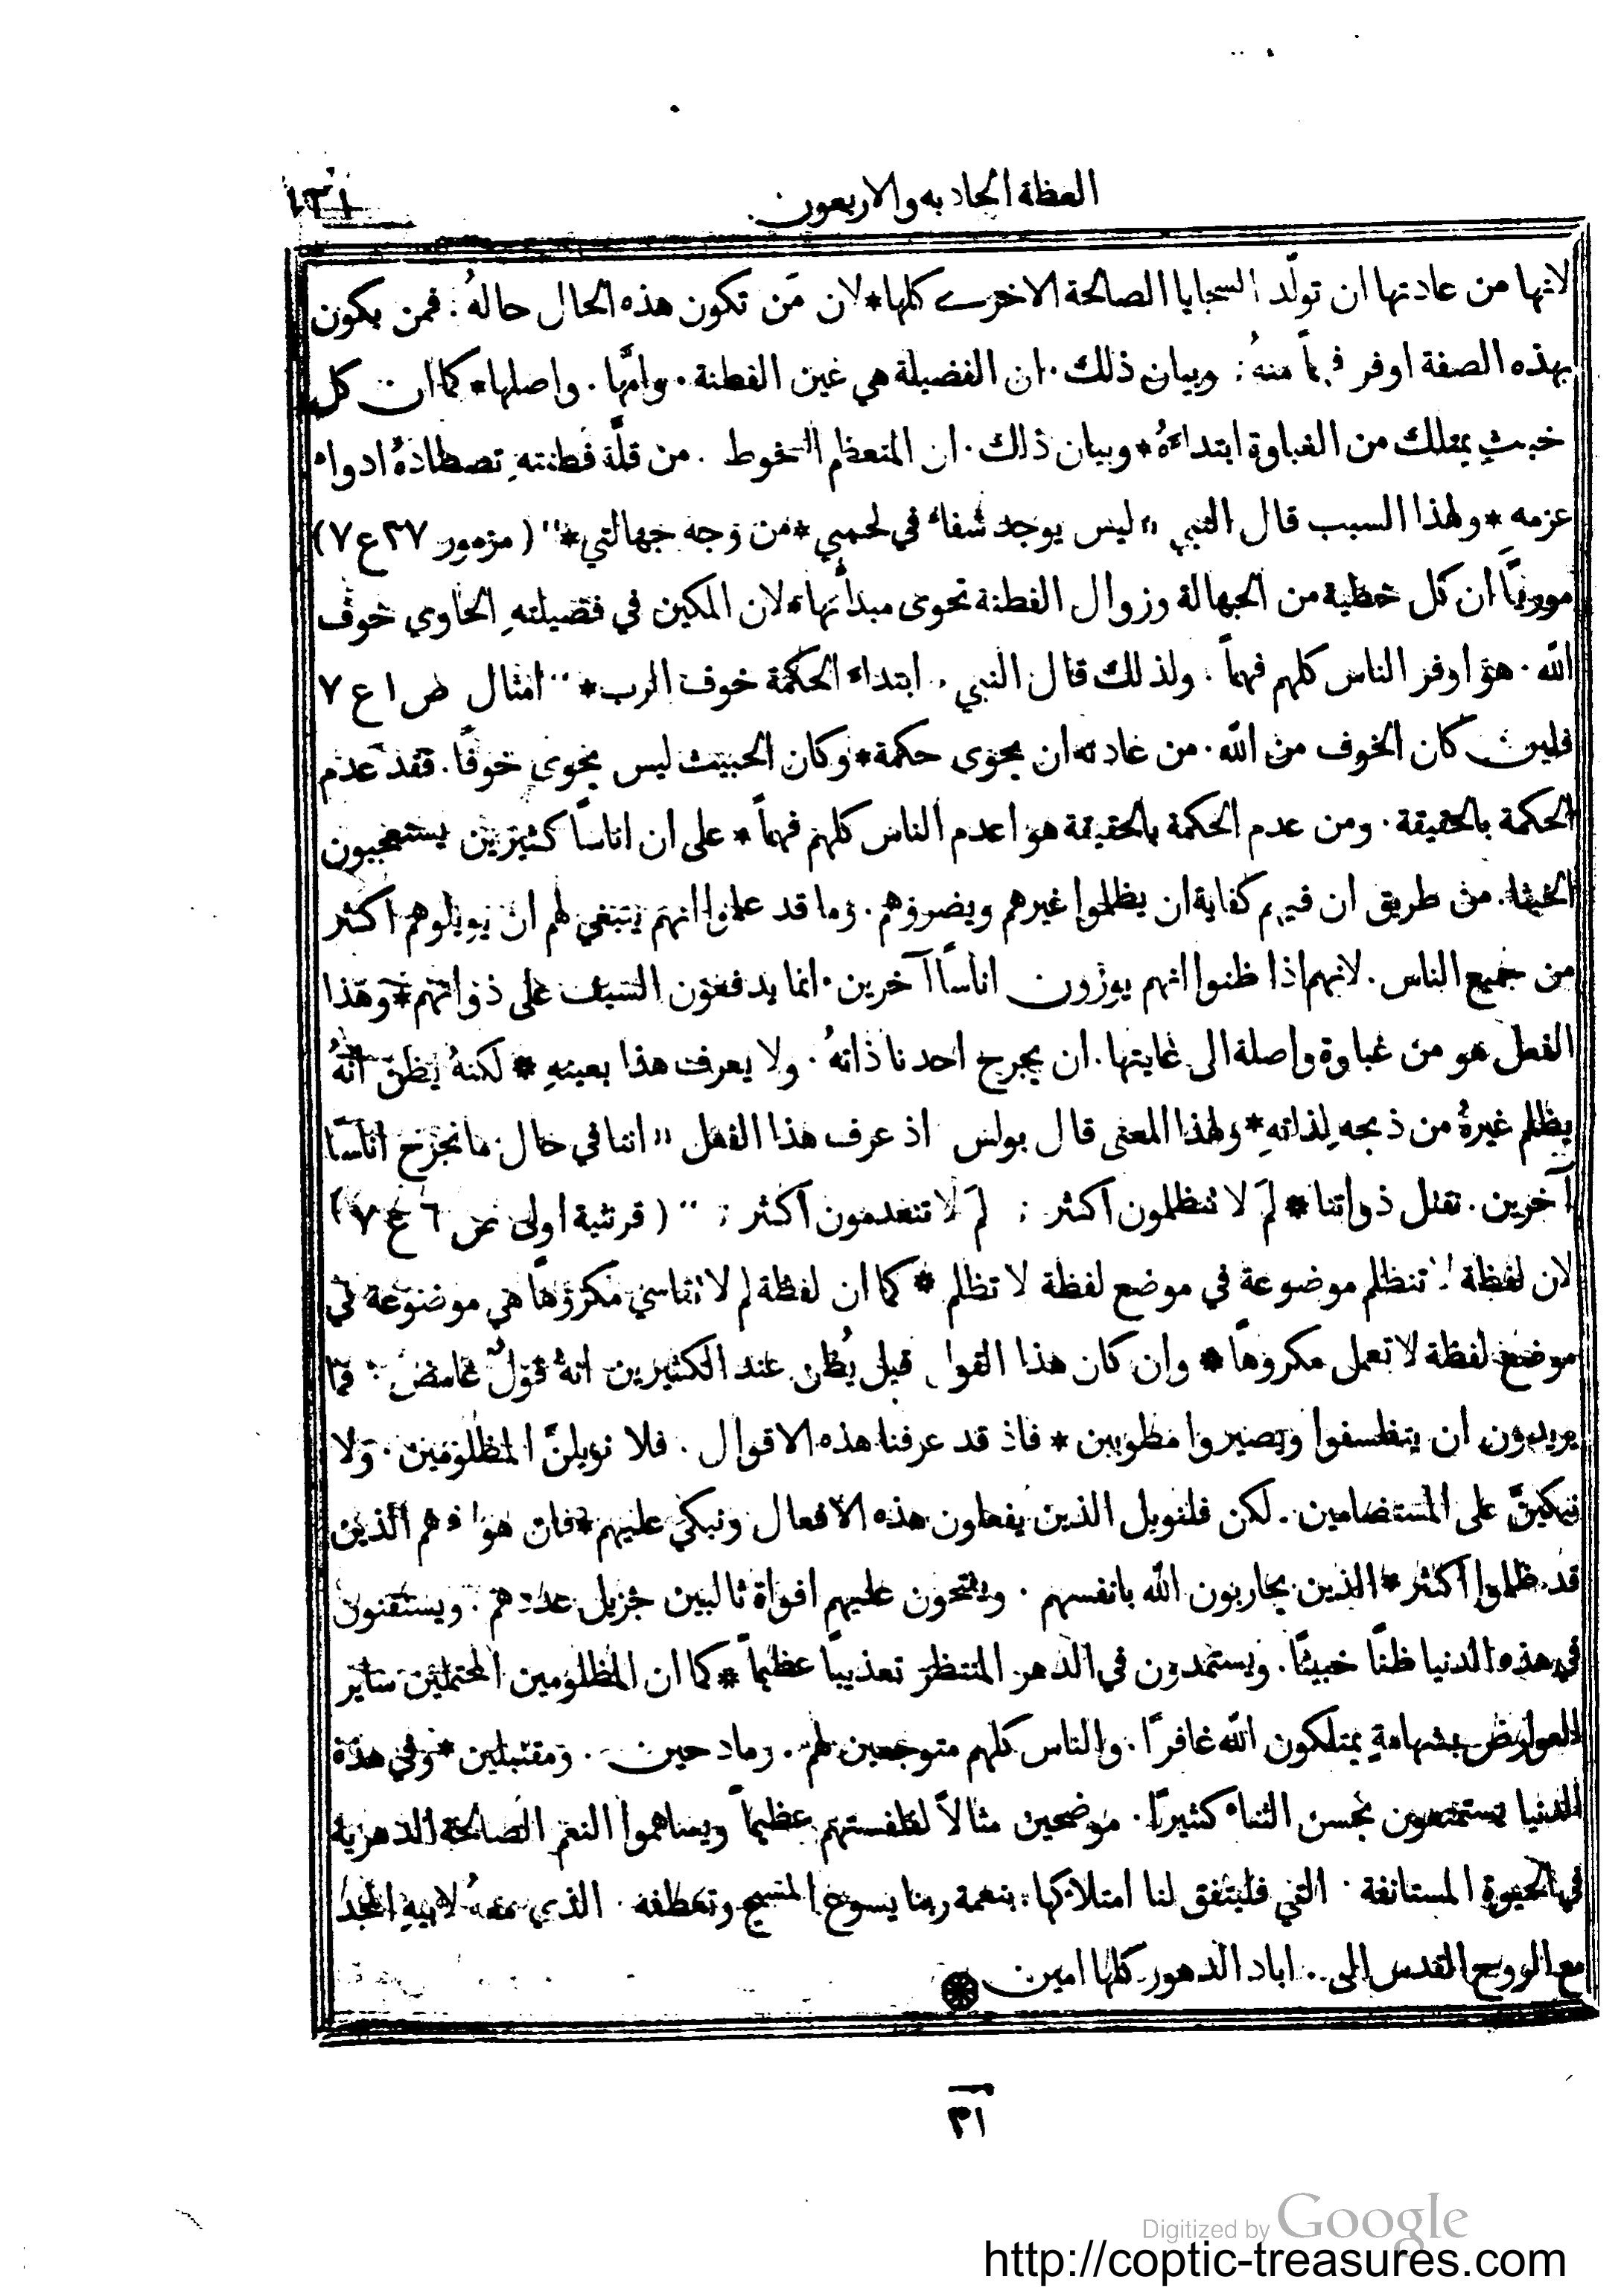 العظة الحادية والاربعون
لانها من عادتها ان تولّد السجايا الصالحة الاخرى كلها * لان مَن تكون هذه الحال حالهُ . فمن يكون
بهذه الصفة اوفر فهماً منهُ ; وبيان ذلك . ان الفضيلة هي عين الفطنة . وامّها . واصلها * كما ان كل
خبثٍ يمتلك من الغباوة ابتداءهُ * وبيان ذلك . ان المتعظم السخوط . من قلَّة فطنتهِ تصطادهُ ادواء
عزمه * ولهذا السبب قال النبي " ليس يوجد شفاء في لحمي * من وجه جهالتي * " ( مزمور ٣٧ ع ٧ )
مورياً ان كل خطية من الجهالة وزوال الفطنة تحوى مبداها * لان المكين في فضيلتهِ الحاوي خوف
الله . هو اوفر الناس كلهم فهماً . ولذلك قال النبي . ابتداء الحكمة خوف الرب * " امثال ص ١ ع ٧
فلين كان الخوف من الله . من عادته ان يحوى حكمة * وكان الخبيث ليس يحوى خوفًا . فقد عدم
الحكمة بالحقيقة . ومن عدم الحكمة بالحقيقة هو اعدم الناس كلهم فهماً * على ان اناساً كثيرين يستعجبون
الخبثا . من طريق ان فيهم كفاية ان يظلموا غيرهم ويضروهم . وما قد علموا انهم ينبغي لهم ان يويلوهم اكثر
من جميع الناس . لانهم اذا ظنوا انهم يوزون اناساً آخرين . انما يدفعون السيف على ذواتهم * وهذا
الفعل هو من غباوة واصلة الى غايتها . ان يجرح احدنا ذاتهُ . ولا يعرف هذا بعينهِ * لكنهُ يظن انهُ
يظلم غيرهُ من ذبحهِ لذاتهِ * ولهذا المعنى قال بولس اذ عرف هذا الفعل " اننا في حال ما نجرح اناساً
آخرين . نقتل ذواتنا * لِمَ لا تنظلمون اكثر ; لِمَ لا تنعدمون اكثر ; " ( قرنثية اولى ص ٦ ع ٧ )
لان لفظة لا تنظلم موضوعة في موضع لفظة لا تظلم * كما ان لفظة لم لا تقاسي مكروهاً هي موضوعة في
موضع لفظة لا تعمل مكروهاً * وان كان هذا القول قبل يُظن عند الكثيرين انهُ قول غامض . فما
يريدون ان يتفلسفوا ويصيروا مطوبين * فاذ قد عرفنا هذه الاقوال . فلا نويلنَّ المظلومين . ولا
نبكينَّ على المستضامين . لكن فلنويل الذين يفعلون هذه الافعال ونبكي عليهم * فان هولاء هم الذين
قد ظلموا اكثر * الذين يحاربون الله بانفسهم . ويفتحون عليهم افواة ثالبين جزيل عددهم . ويستقنون
في هذه الدنيا ظنًا خبيثًا . ويستمدون في الدهر المنتظر تعذيبًا عظيماً * كما ان المظلومين المحتملين ساير
العوارض بشهامةٍ يمتلكون الله غافرًا . والناس كلهم متوجعين لهم . ومادحين . ومقتبلين * وفي هذه
الدنيا يستمتعون بحسن الثناء كثيرًا . موضحين مثالاً لفلسفتهم عظيماً ويساهموا النعم الصالحة الدهرية
في الحيوة المستانفة . التي فليتفق لنا امتلاكها . بنعمة ربنا يسوع المسيح وتعطفه . الذي معهُ لابيهِ المجد
مع الروح القدس الى . . اباد الدهور كلها امين
٣١
Digitized by Google
http://coptic-treasures.com